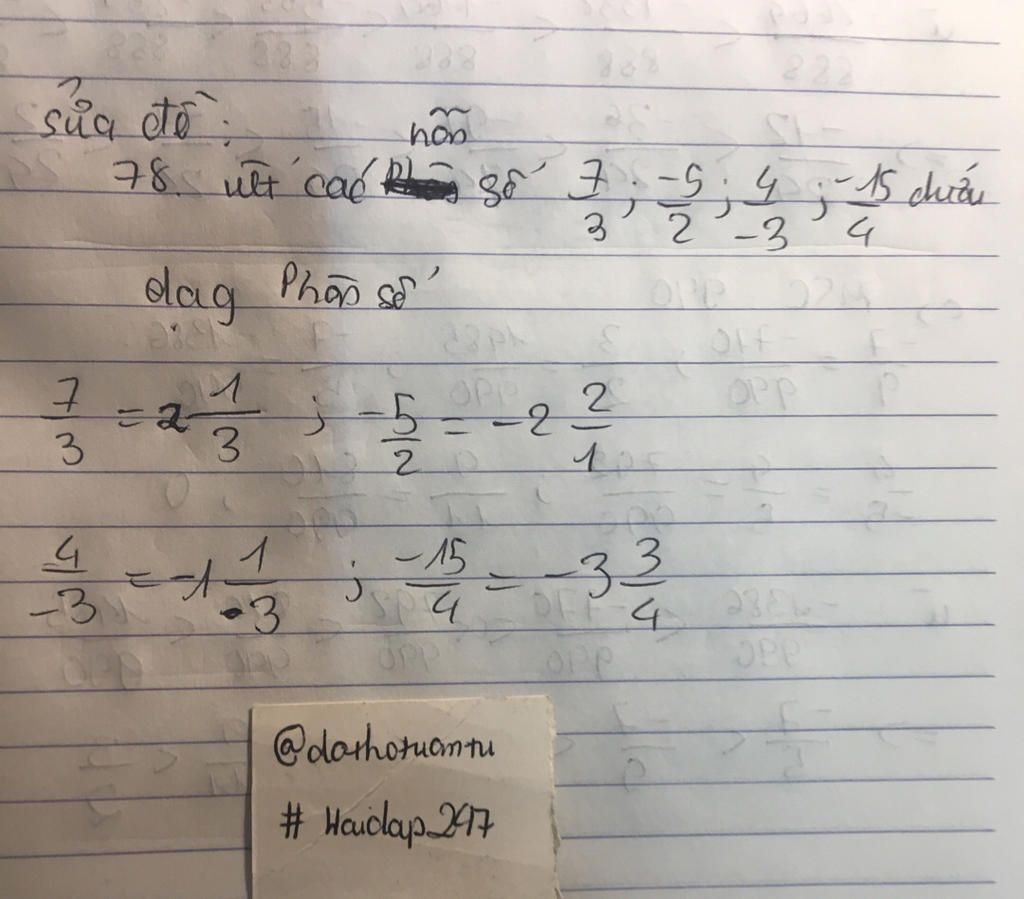 sửa đề:
hỗn
78. viết các số 7/3; -5/2; 4/-3; -15/4 dưới
dạg Phân số
7/3 = 2 1/3 ; -5/2 = -2 2/1
4/-3 = -1 1/-3 ; -15/4 = -3 3/4
@dorhotuantu
# Hoidap247